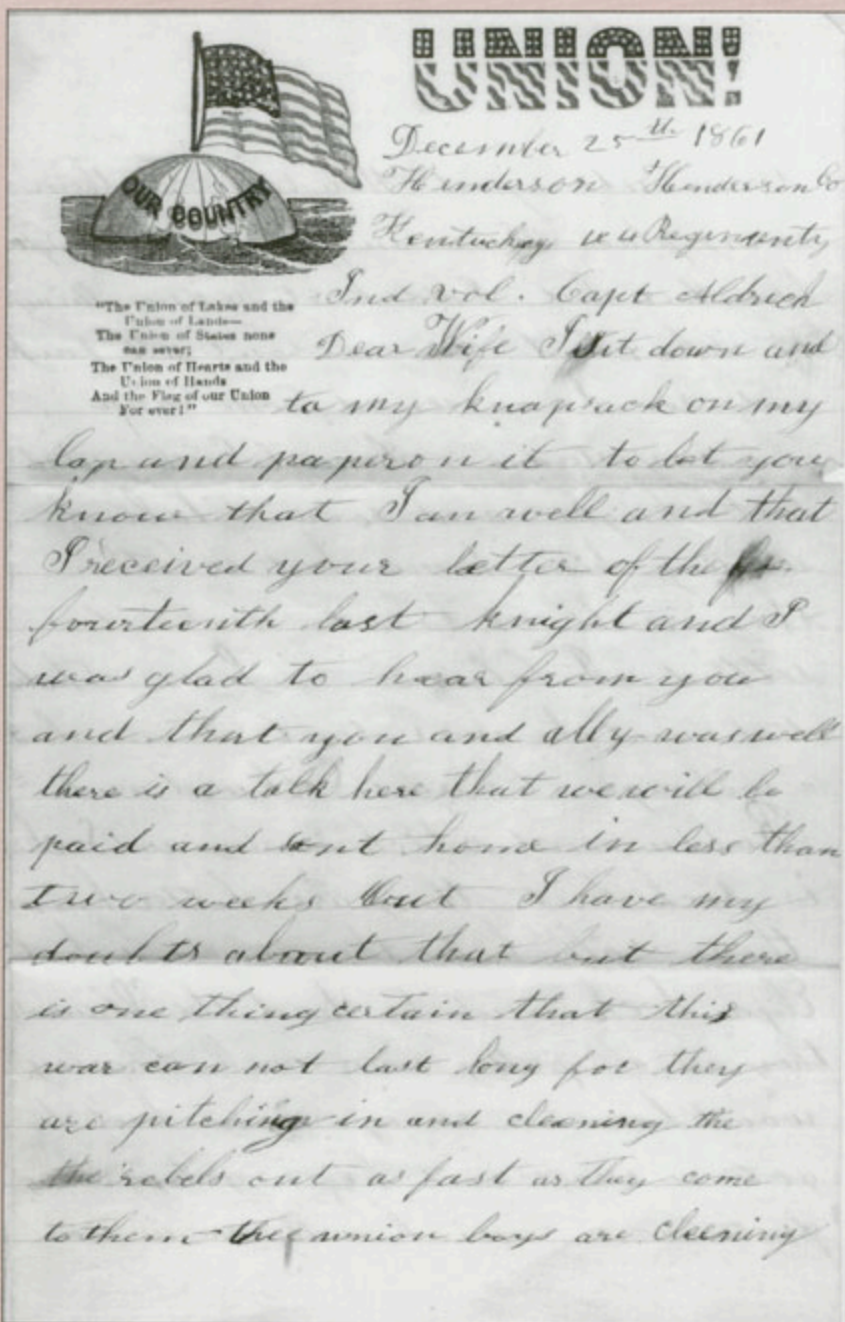 UNION!
OUR COUNTRY
"The Union of Lakes and the
Union of Lands—
The Union of States none
can sever;
The Union of Hearts and the
Union of Hands
And the Flag of our Union
For ever!"
December 25th 1861
Henderson Henderson Co
Kentucky Regiment
Ind vol. Capt Aldrich
Dear Wife I sit down and
to my knapsack on my
lap and paper on it to let you
know that I am well and that
I received your letter of the
fourteenth last knight and I
was glad to hear from you
and that you and ally was well
there is a talk here that we will be
paid and sent home in less than
two weeks but I have my
doubts about that but there
is one thing certain that this
war can not last long for they
are pitching in and cleening the
the rebels out as fast as they come
to them the union boys are cleening